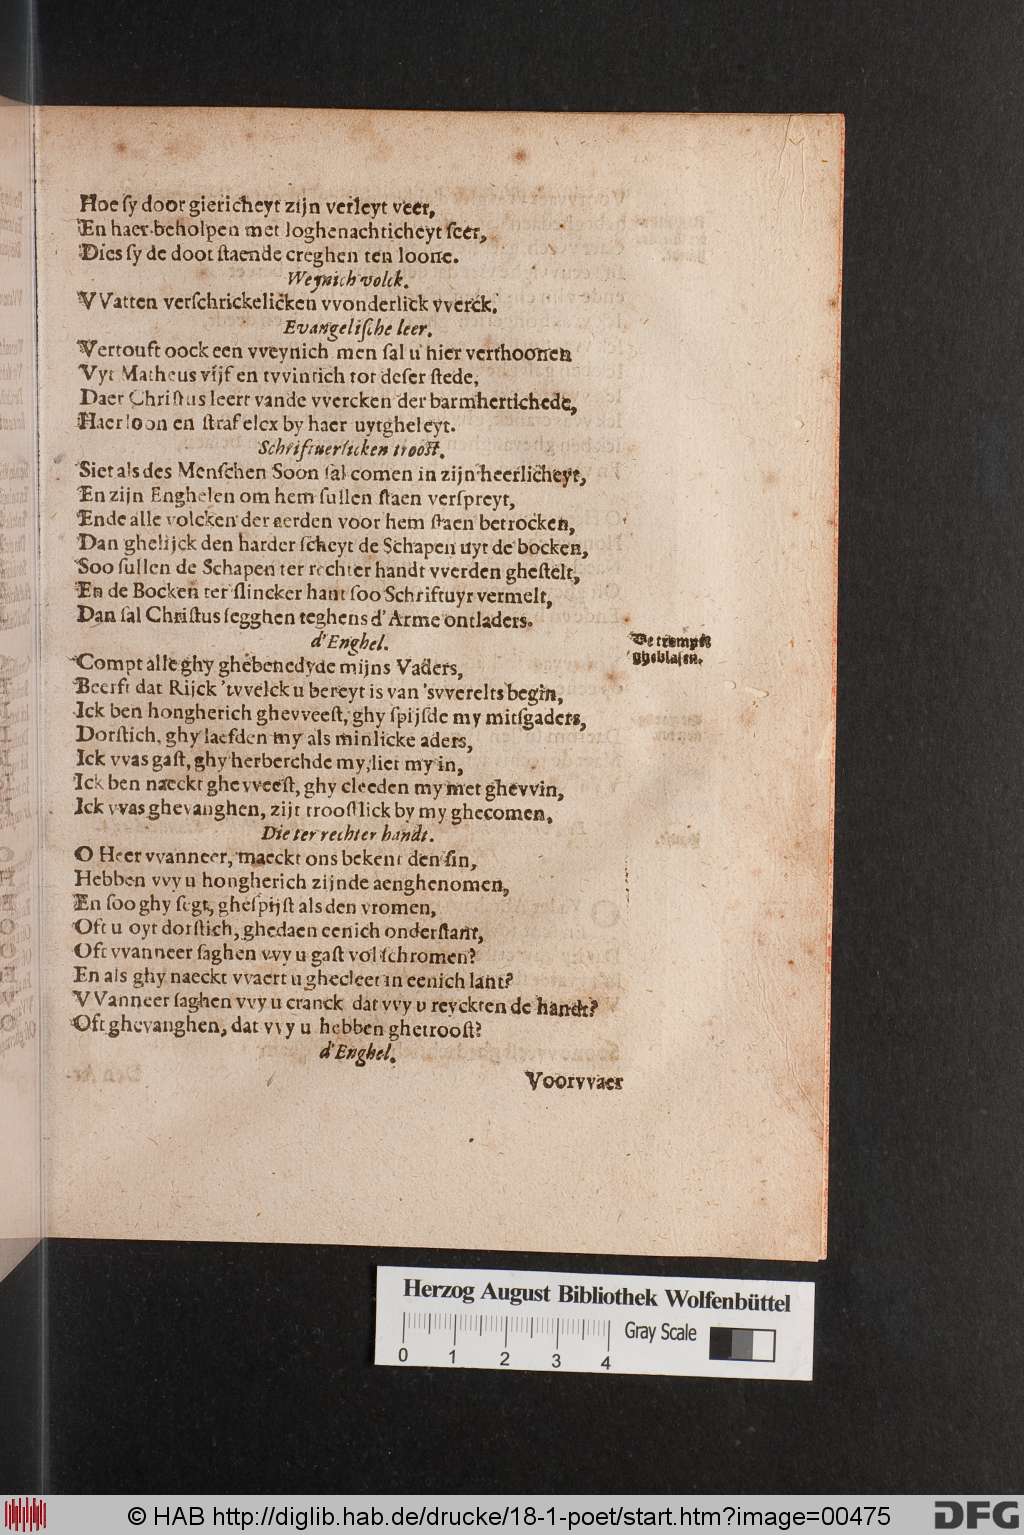 Hoe ſy door giericheyt zijn verleyt veer,
En haer beholpen met loghenachticheyt ſeer,
Dies ſy de doot ſtaende creghen ten loone.
Weynich volck.
VVatten verſchrickelicken vvonderlick vverck.
Evangeliſche leer.
Vertouft oock een vveynich men ſal u hier verthoonen
Vyt Matheus vijf en tvvintich tot deſer ſtede,
Daer Chriſtus leert vande vvercken der barmhertichede,
Haer loon en ſtraf elcx by haer uytgheleyt.
Schriftuerlicken trooſt.
Siet als des Menſchen Soon ſal comen in zijn heerlicheyt,
En zijn Enghelen om hem ſullen ſtaen verſpreyt,
Ende alle volcken der aerden voor hem ſtaen betrocken,
Dan ghelijck den harder ſcheyt de Schapen uyt de bocken,
Soo ſullen de Schapen ter rechter handt vverden gheſtelt,
En de Bocken ter ſlincker hant ſoo Schriftuyr vermelt,
Dan ſal Chriſtus ſegghen teghens d'Arme ontladers.
d'Enghel.
De trompet
gheblaſen.
Compt alle ghy ghebenedyde mijns Vaders,
Beerft dat Rijck 'tvvelck u bereyt is van 'svverelts begin,
Ick ben hongherich ghevveeſt, ghy ſpijſde my mitſgaders,
Dorſtich, ghy laefden my als minlicke aders,
Ick vvas gaſt, ghy herberchde my, liet my in,
Ick ben naeckt ghevveeſt, ghy cleeden my met ghevvin,
Ick vvas ghevanghen, zijt trooſtlick by my ghecomen.
Die ter rechter handt.
O Heer vvanneer, maeckt ons bekent den ſin,
Hebben vvy u hongherich zijnde aenghenomen,
En ſoo ghy ſegt, gheſpijſt als den vromen,
Oft u oyt dorſtich, ghedaen eenich onderſtant,
Oft vvanneer ſaghen vvy u gaſt vol ſchromen?
En als ghy naeckt vvaert u ghecleet in eenich lant?
VVanneer ſaghen vvy u cranck dat vvy u reyckten de handt?
Oft ghevanghen, dat vvy u hebben ghetrooſt?
d'Enghel.
Voorvvaer
Herzog August Bibliothek Wolfenbüttel
Gray Scale
0 1 2 3 4
© HAB http://diglib.hab.de/drucke/18-1-poet/start.htm?image=00475
DFG